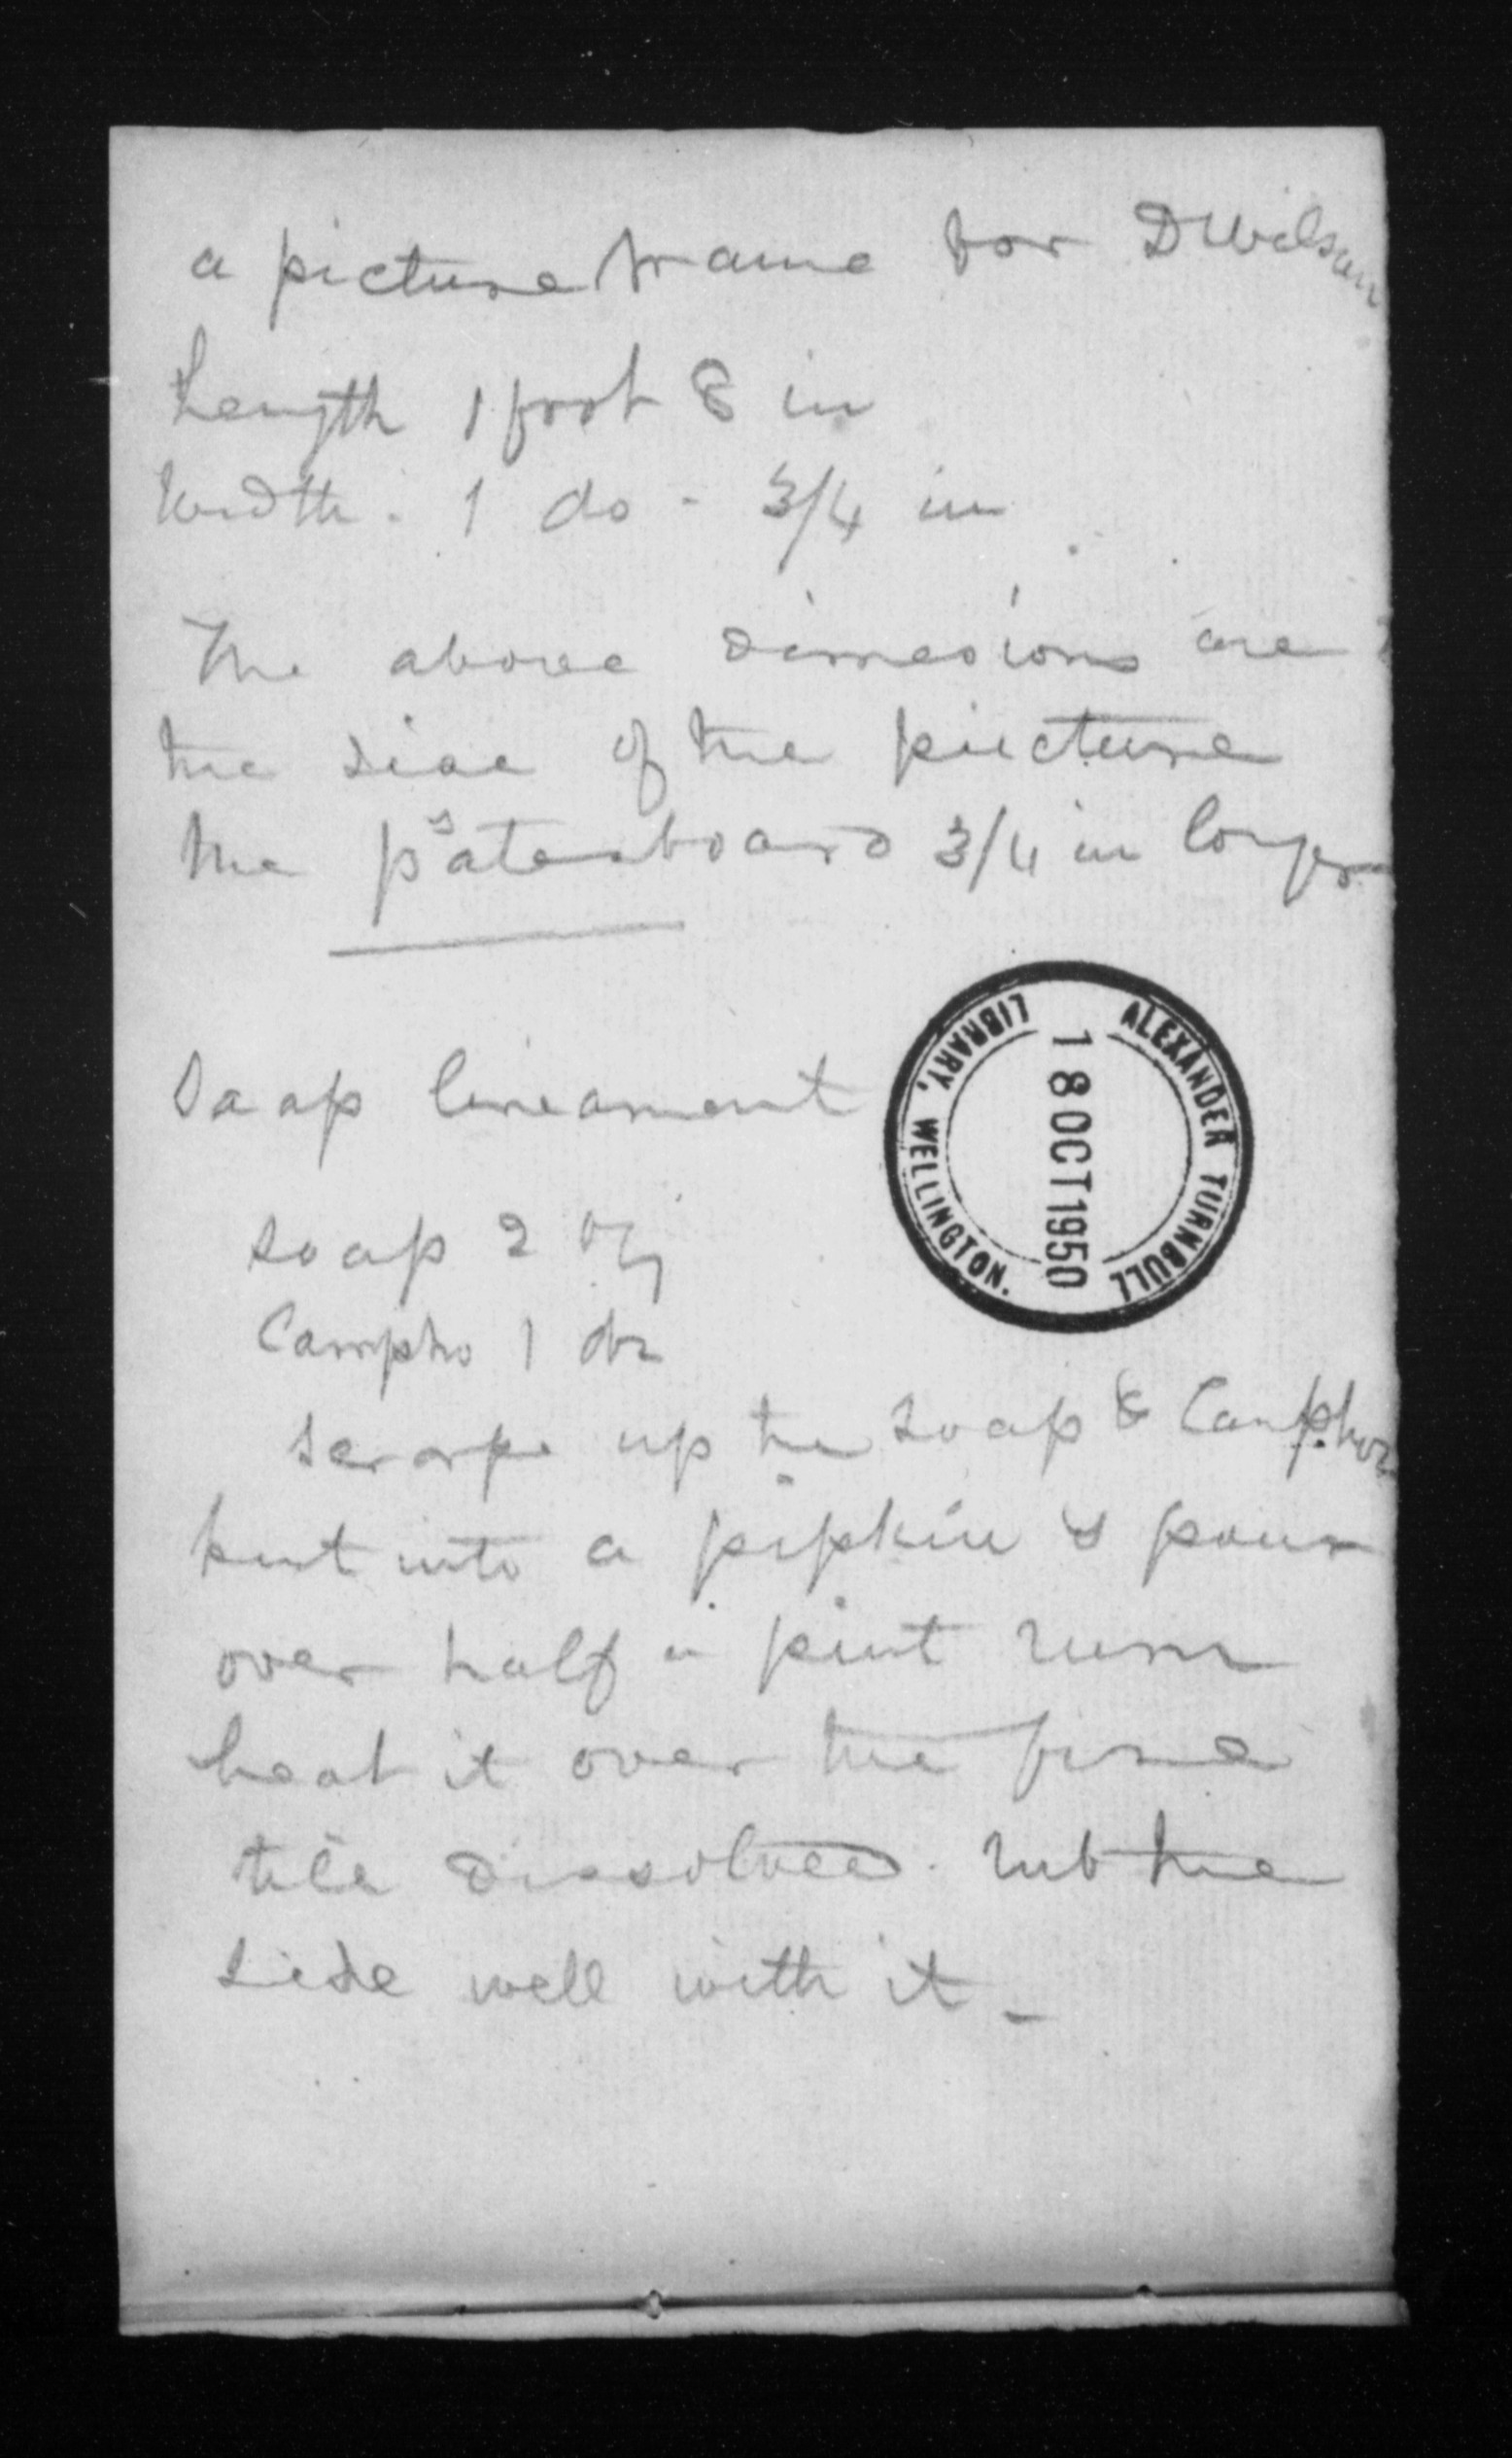 a picture frame for D Wilson
Length 1 foot 8 in
Width - 1 do - 3/4 in
The above dimesions are
the size of the picture
the pasteboard 3/4 in longer
Soap lineament
soap 2 oz
Campho 1 dr
scrape up the soap & Camphor
put into a pipkin & pour
over half a pint rum
heat it over the fire
till dissolved. rub the
side well with it -
ALEXANDER TURNBULL
LIBRARY, WELLINGTON.
18 OCT 1950